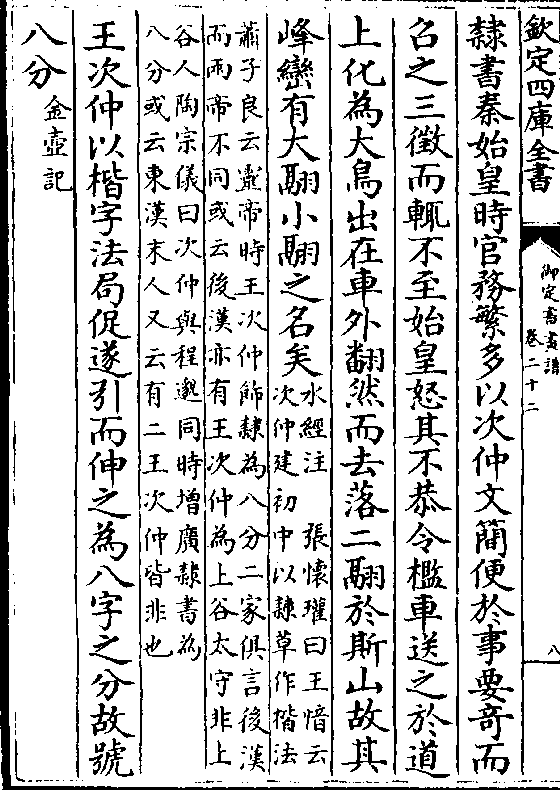 欽定四庫全書
御定書畫譜
卷二十二
八
隸書秦始皇時官務繁多以次仲文簡便於事要奇而
召之三徵而輒不至始皇怒其不恭令檻車送之於道
上化為大鳥出在車外翻然而去落二翮於斯山故其
峰巒有大翮小翮之名矣
水經注 張懷瓘曰王愔云
次仲建初中以隸草作楷法
蕭子良云靈帝時王次仲飾隸為八分二家俱言後漢
而兩帝不同或云後漢亦有王次仲為上谷太守非上
谷人陶宗儀曰次仲與程邈同時增廣隸書為
八分或云東漢末人又云有二王次仲皆非也
王次仲以楷字法局促遂引而伸之為八字之分故號
八分
金壺記